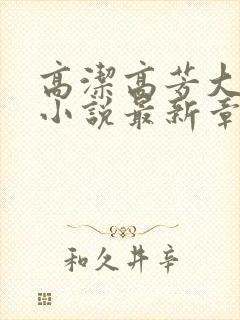 高潔高芳大
小說最新章
和久井辛